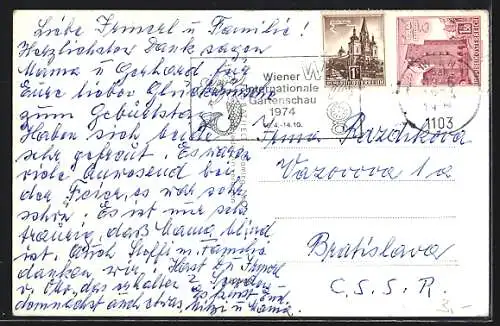 Liebe Irmerl u Familie!
Herzlichsten Dank sagen
Mama u Gerhard für
Eure lieben Glückwünsche
zum Geburtstag
Haben sich beide
sehr gefreut. Es waren
viele Anwesend bei
der Feier, es war sehr
schön. Es ist nur sehr
traurig, daß Mama blind
ist. Auch Steffi u. Familie
danken wir. Horst
erhalten
demnächst auch etwas. Mitzi u Mama.
Wiener
Internationale
Gartenschau
1974
4.-14.10.
REPUBLIK ÖSTERREICH
1103
Irma Razdikova
Vazovova 1a
Bratislava
Č.S.S.R.
3,-